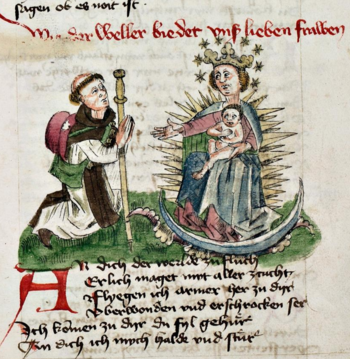 sagen ob es noit ist
Wie der Weller biedet vnß lieben frauwen
An dich der werlde zufluch
Erlich maget mit aller zucht
Flyegen ich armer her zu dyr
Vberwonden vnd erschrocken ser
Ich komen zu dyr du fyl gehür
An dich ich mych halde vnd stür